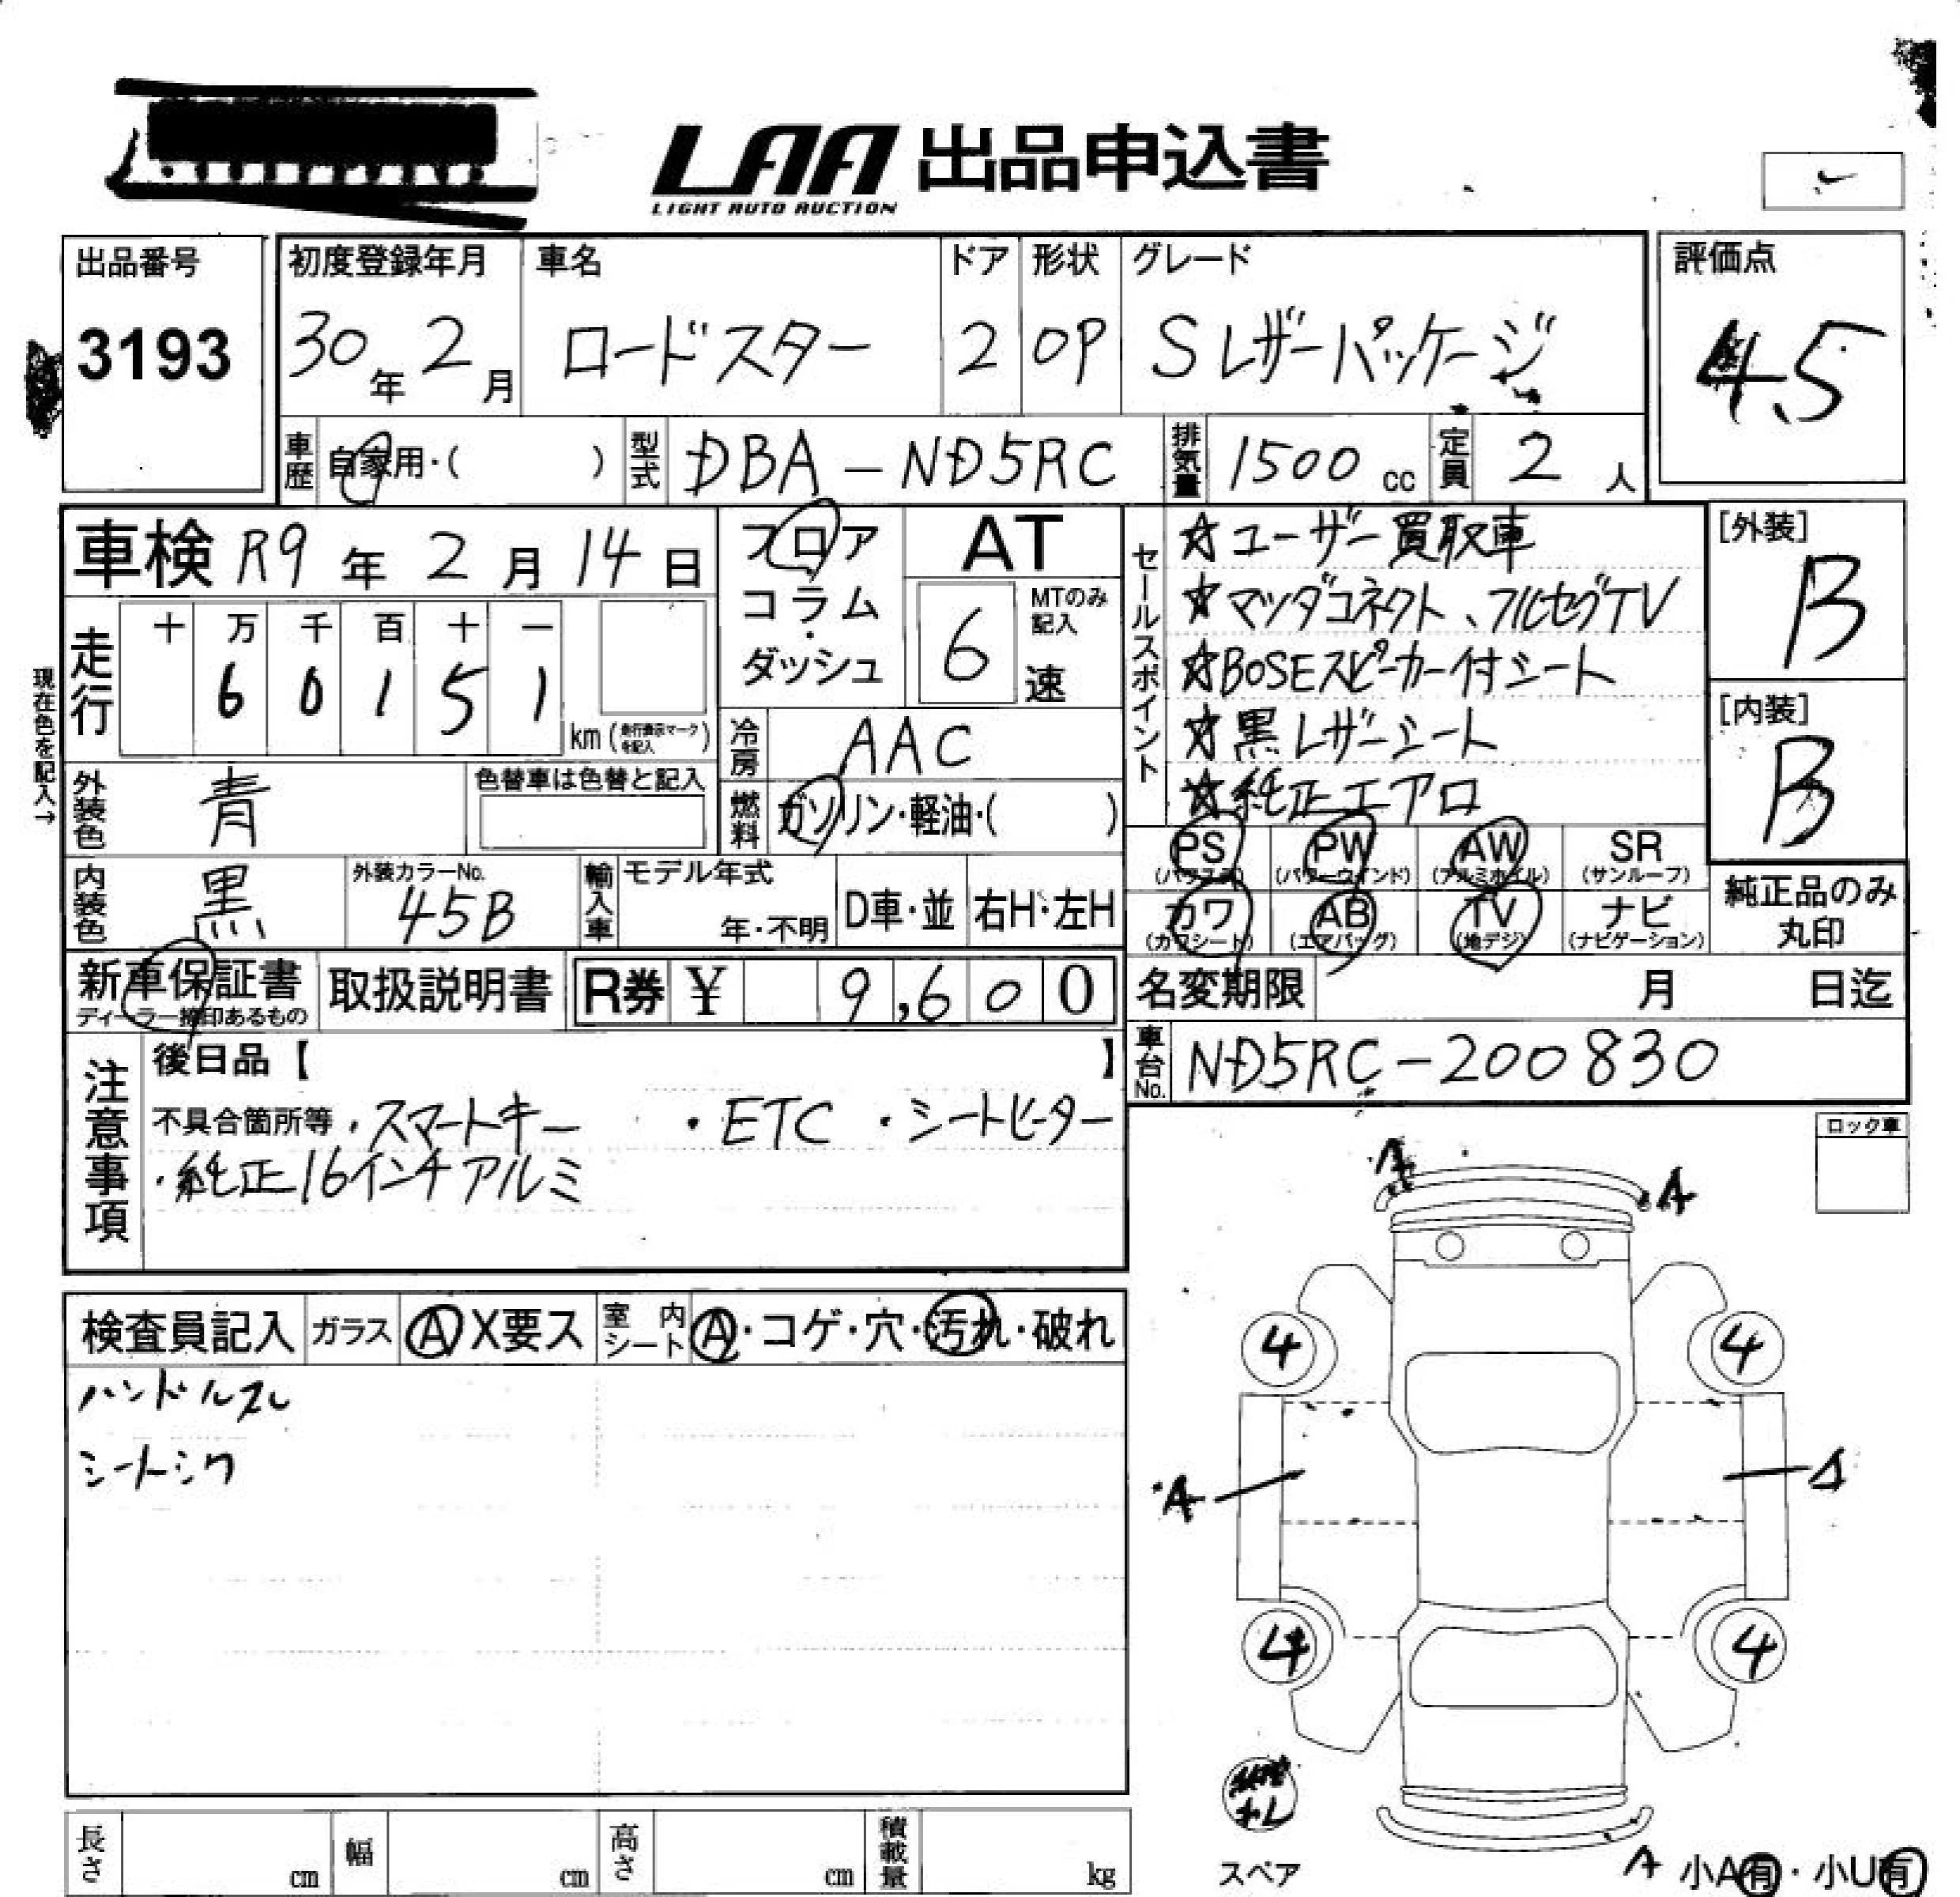 LAA 出品申込書
LIGHT AUTO AUCTION
出品番号
3193
初度登録年月
30年 2月
車名
ロードスター
ドア
2
形状
OP
グレード
Sレザーパッケージ
評価点
4.5
車歴 自家用・( )
型式 DBA-ND5RC
排気量 1500 cc
定員 2 人
車検 R9 年 2 月 14 日
フロア
コラム
・
ダッシュ
AT
6
MTのみ記入
速
セールスポイント
☆ユーザー買取車
☆マツダコネクト、フルセグTV
☆BOSEスピーカー付シート
☆黒レザーシート
☆純正エアロ
[外装]
B
[内装]
B
現在色を記入→
走行
十 万 千 百 十 一
6 0 1 5 1
km (走行表示マークを記入)
冷房 AAC
外装色 青
色替車は色替と記入
燃料 ガソリン・軽油・( )
PS (パワステ)
PW (パワーウインド)
AW (アルミホイル)
SR (サンルーフ)
カワ (カワシート)
AB (エアバッグ)
TV (地デジ)
ナビ (ナビゲーション)
純正品のみ
丸印
内装色 黒
外装カラーNo.
45B
輸入車
モデル年式
年・不明
D車・並
右H・左H
新車保証書
ディーラー捺印あるもの
取扱説明書
R券 ¥ 9,600
名変期限 月 日迄
車台No. ND5RC-200830
注意事項
後日品【 】
不具合箇所等 ・スマートキー ・ETC ・シートヒーター
・純正16インチアルミ
ロック車
検査員記入
ガラス Ⓐ X要ス
室内シート Ⓐ・コゲ・穴・汚れ・破れ
ハンドルスレ
シートシワ
A
A
4
4
A
A
4
4
スペア
A 小A有・小U有
長さ cm
幅 cm
高さ cm
積載量 kg